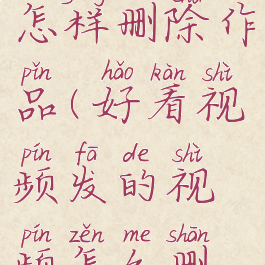 怎样删除作
pǐn hǎo kàn shì
品(好看视
pín fā de shì
频发的视
pín zěn me shān
频怎么删